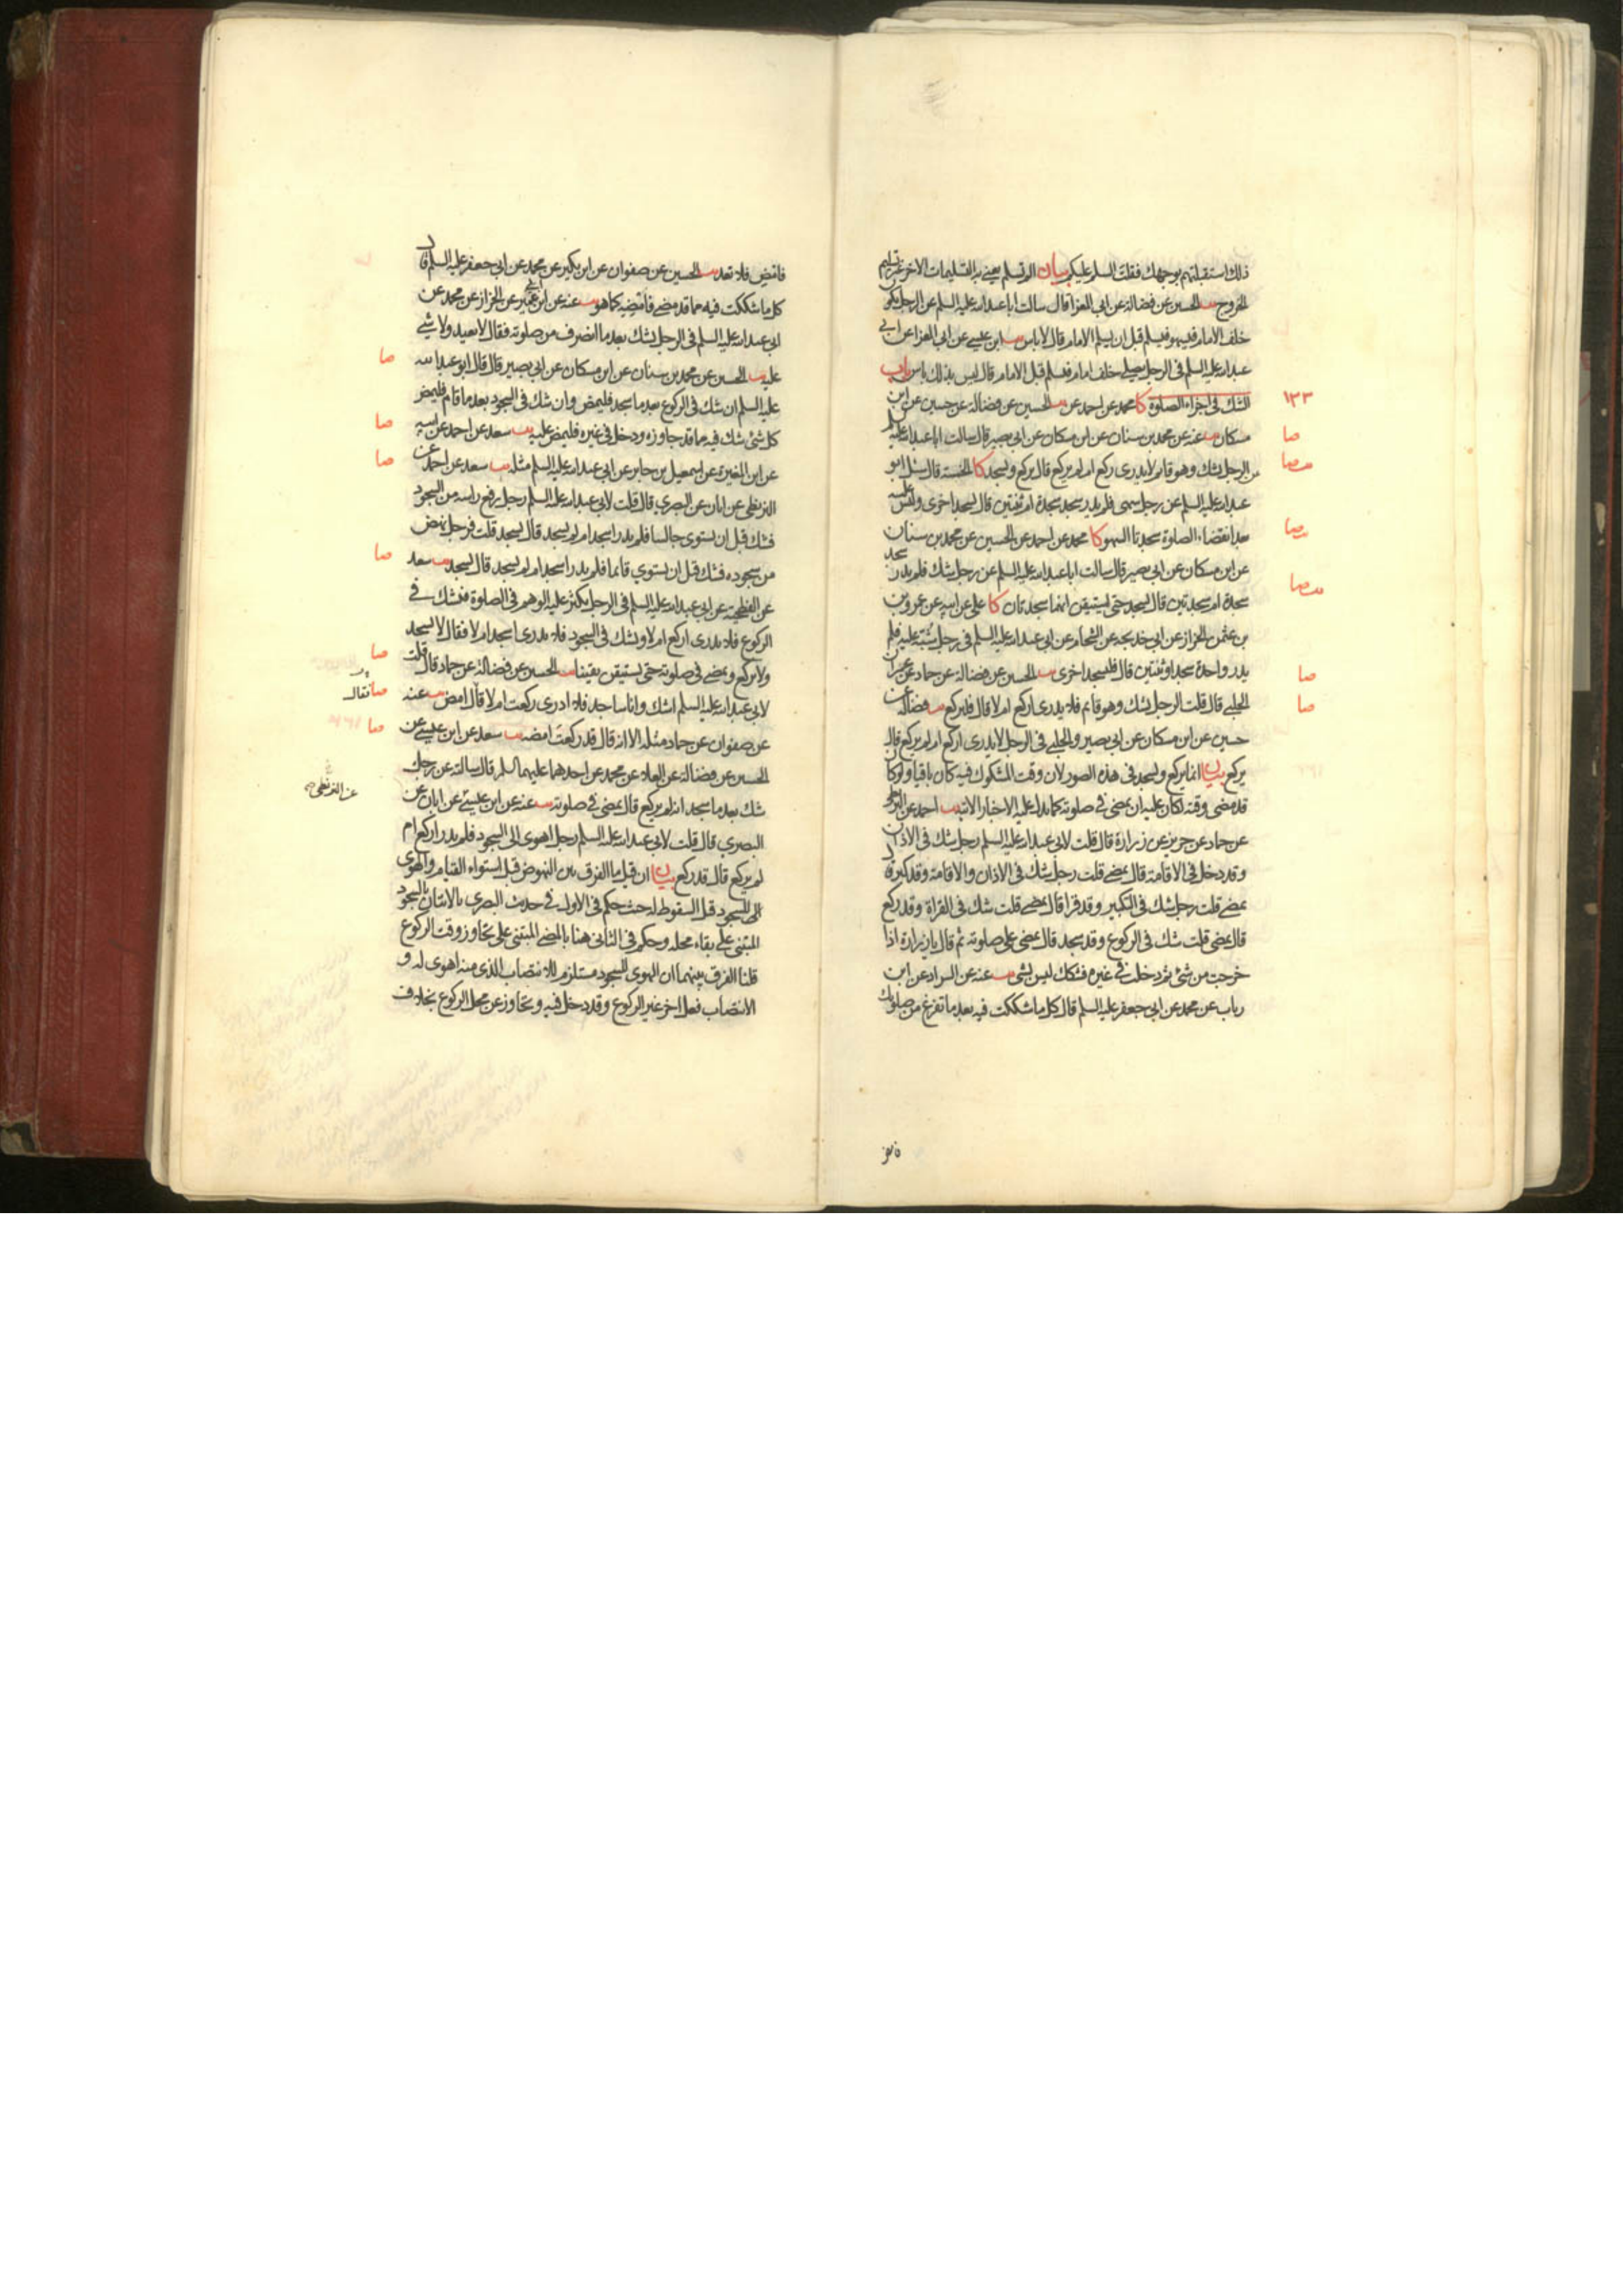 ذلك استقبلتهم بوجهك فقلت السلم عليكم بيان الم تسلم يعني به التسليمات الاخر غير تسليم
الخروج يب الحسين عن فضالة عن ابي المعزا قال سالت ابا عبدالله عليه السلم عن الرجل يكون
خلف الامام فيسهو فيسلم قبل ان يسلم الامام قال لا باس يب ابن عيسى عن ابي المعزا عن ابي
عبدالله عليه السلم في الرجل يصلي خلف امام فسلم قبل الامام قال ليس بذلك باس باب
١٣٣
الشك في اجزاء الصلوة كا محمد عن احمد عن يب الحسين عن فضالة عن حسين عن ابن
صا
مسكان يب عنه عن محمد بن سنان عن ابن مسكان عن ابي بصير قال سالت ابا عبدالله عليه السلم
عن الرجل يشك وهو قائم لا يدرى ركع ام لم يركع قال يركع ويسجد كا الخمسة قال سئل ابو
عبدالله عليه السلم عن رجل سهى فلم يدر سجد سجدة ام ثنتين قال يسجد اخرى وليس عليه
بعد انقضاء الصلوة سجدتا السهو كا محمد عن احمد عن الحسين عن محمد بن سنان
عن ابن مسكان عن ابي بصير قال سالت ابا عبدالله عليه السلم عن رجل شك فلم يدر سجد
سجدة ام سجدتين قال يسجد حتى يستيقن انهما سجدتان كا علي عن ابيه عن عمرو بن
بن عثمن الخزاز عن ابي خديجة عن الشحام عن ابي عبدالله عليه السلم في رجل شبه عليه فلم
صا
يدر واحدة سجد او ثنتين قال فليسجد اخرى يب الحسين عن فضالة عن حماد عن عمران
صا
الحلبي قال قلت الرجل يشك وهو قايم فلا يدرى اركع ام لا قال فليركع يب فضالة عن
حسين عن ابن مسكان عن ابي بصير والحلبي في الرجل لا يدرى اركع ام لم يركع قال
يركع بيان انما يركع ويسجد في هذه الصور لان وقت المشكوك فيه كان باقيا ولو كان
قد مضى وقته لكان عليه ان يمضى في صلوته كما يدل عليه الاخبار الاتية يب احمد عن البزنطي
عن حماد عن حريز عن زرارة قال قلت لابي عبدالله عليه السلم رجل شك في الاذان
وقد دخل في الاقامة قال يمضي قلت رجل شك في الاذان والاقامة وقد كبر قال
يمضي قلت رجل شك في التكبير وقد قرا قال يمضي قلت شك في القراة وقد ركع
قال يمضى قلت شك في الركوع وقد سجد قال يمضى على صلوته ثم قال يا زرارة اذا
خرجت من شئ ثم دخلت في غيره فشكك ليس بشى يب عنه عن السراد عن ابن
رباب عن محمد عن ابي جعفر عليه السلم قال كل ما شككت فيه بعد ما تفرغ من صلوتك
فامض
فامض فلا تعد يب الحسين عن صفوان عن ابن بكير عن محمد عن ابي جعفر عليه السلم قال
كل ما شككت فيه مما قد مضى فامضه كما هو يب عنه عن ابن ابي عمير عن الخزاز عن محمد عن
ابي عبدالله عليه السلم في الرجل يشك بعد ما انصرف من صلوته فقال لا يعيد ولا شي
صا
عليه يب الحسين عن محمد بن سنان عن ابن مسكان عن ابي بصير قال قال ابو عبدالله
عليه السلم ان شك في الركوع بعد ما سجد فليمض وان شك في السجود بعد ما قام فليمض
صا
كل شئ شك فيه مما قد جاوزه ودخل في غيره فليمض عليه يب سعد عن احمد عن ابيه
صا
عن ابن المغيرة عن اسمعيل بن جابر عن ابي عبدالله عليه السلم مثله يب سعد عن احمد عن
البزنطي عن ابان عن البصري قال قلت لابي عبدالله عليه السلم رجل رفع راسه من السجود
فشك قبل ان يستوى جالسا فلم يدر اسجد ام لم يسجد قال يسجد قلت فرجل نهض
صا
من سجوده فشك قبل ان يستوي قائما فلم يدر اسجد ام لم يسجد قال يسجد يب سعد
عن الفطحية عن ابي عبدالله عليه السلم في الرجل يكثر عليه الوهم في الصلوة فيشك في
الركوع فلا يدرى اركع ام لا ويشك في السجود فلا يدرى اسجد ام لا فقال لا يسجد
صا
ولا يركع ويمضي في صلوته حتى يستيقن يقينا يب الحسين عن فضالة عن حماد قال قلت
صا فقال
لابي عبدالله عليه السلم اشك وانا ساجد فلا ادرى ركعت ام لا قال امض يب عنه
صا
عن صفوان عن حماد مثله الا انه قال قد ركعت امضه يب سعد عن ابن عيسى عن
الحسين عن فضالة عن العلا عن محمد عن احدهما عليهما السلم قال سالته عن رجل
عن البزنطي
شك بعد ما سجد انه لم يركع قال يمضى في صلوته يب عنه عن ابن عيسى عن ابان عن
البصري قال قلت لابي عبدالله عليه السلم رجل اهوى الى السجود فلم يدر اركع ام
لم يركع قال قد ركع بيان ان قيل ما الفرق بين النهوض قبل استواء القيام والهوى
الى السجود قبل السقوط له حيث حكم في الاول في حديث البصرى بالاتيان بالسجود
المبتنى على بقاء محله وحكم في الثانى هنا بالمضي المبتنى على تجاوز وقت الركوع
قلنا الفرق بينهما ان الهوى للسجود مستلزم للانتصاب الذى منه اهوى له و
الانتصاب فعل اخر غير الركوع وقد دخل فيه وتجاوز عن محل الركوع بخلاف